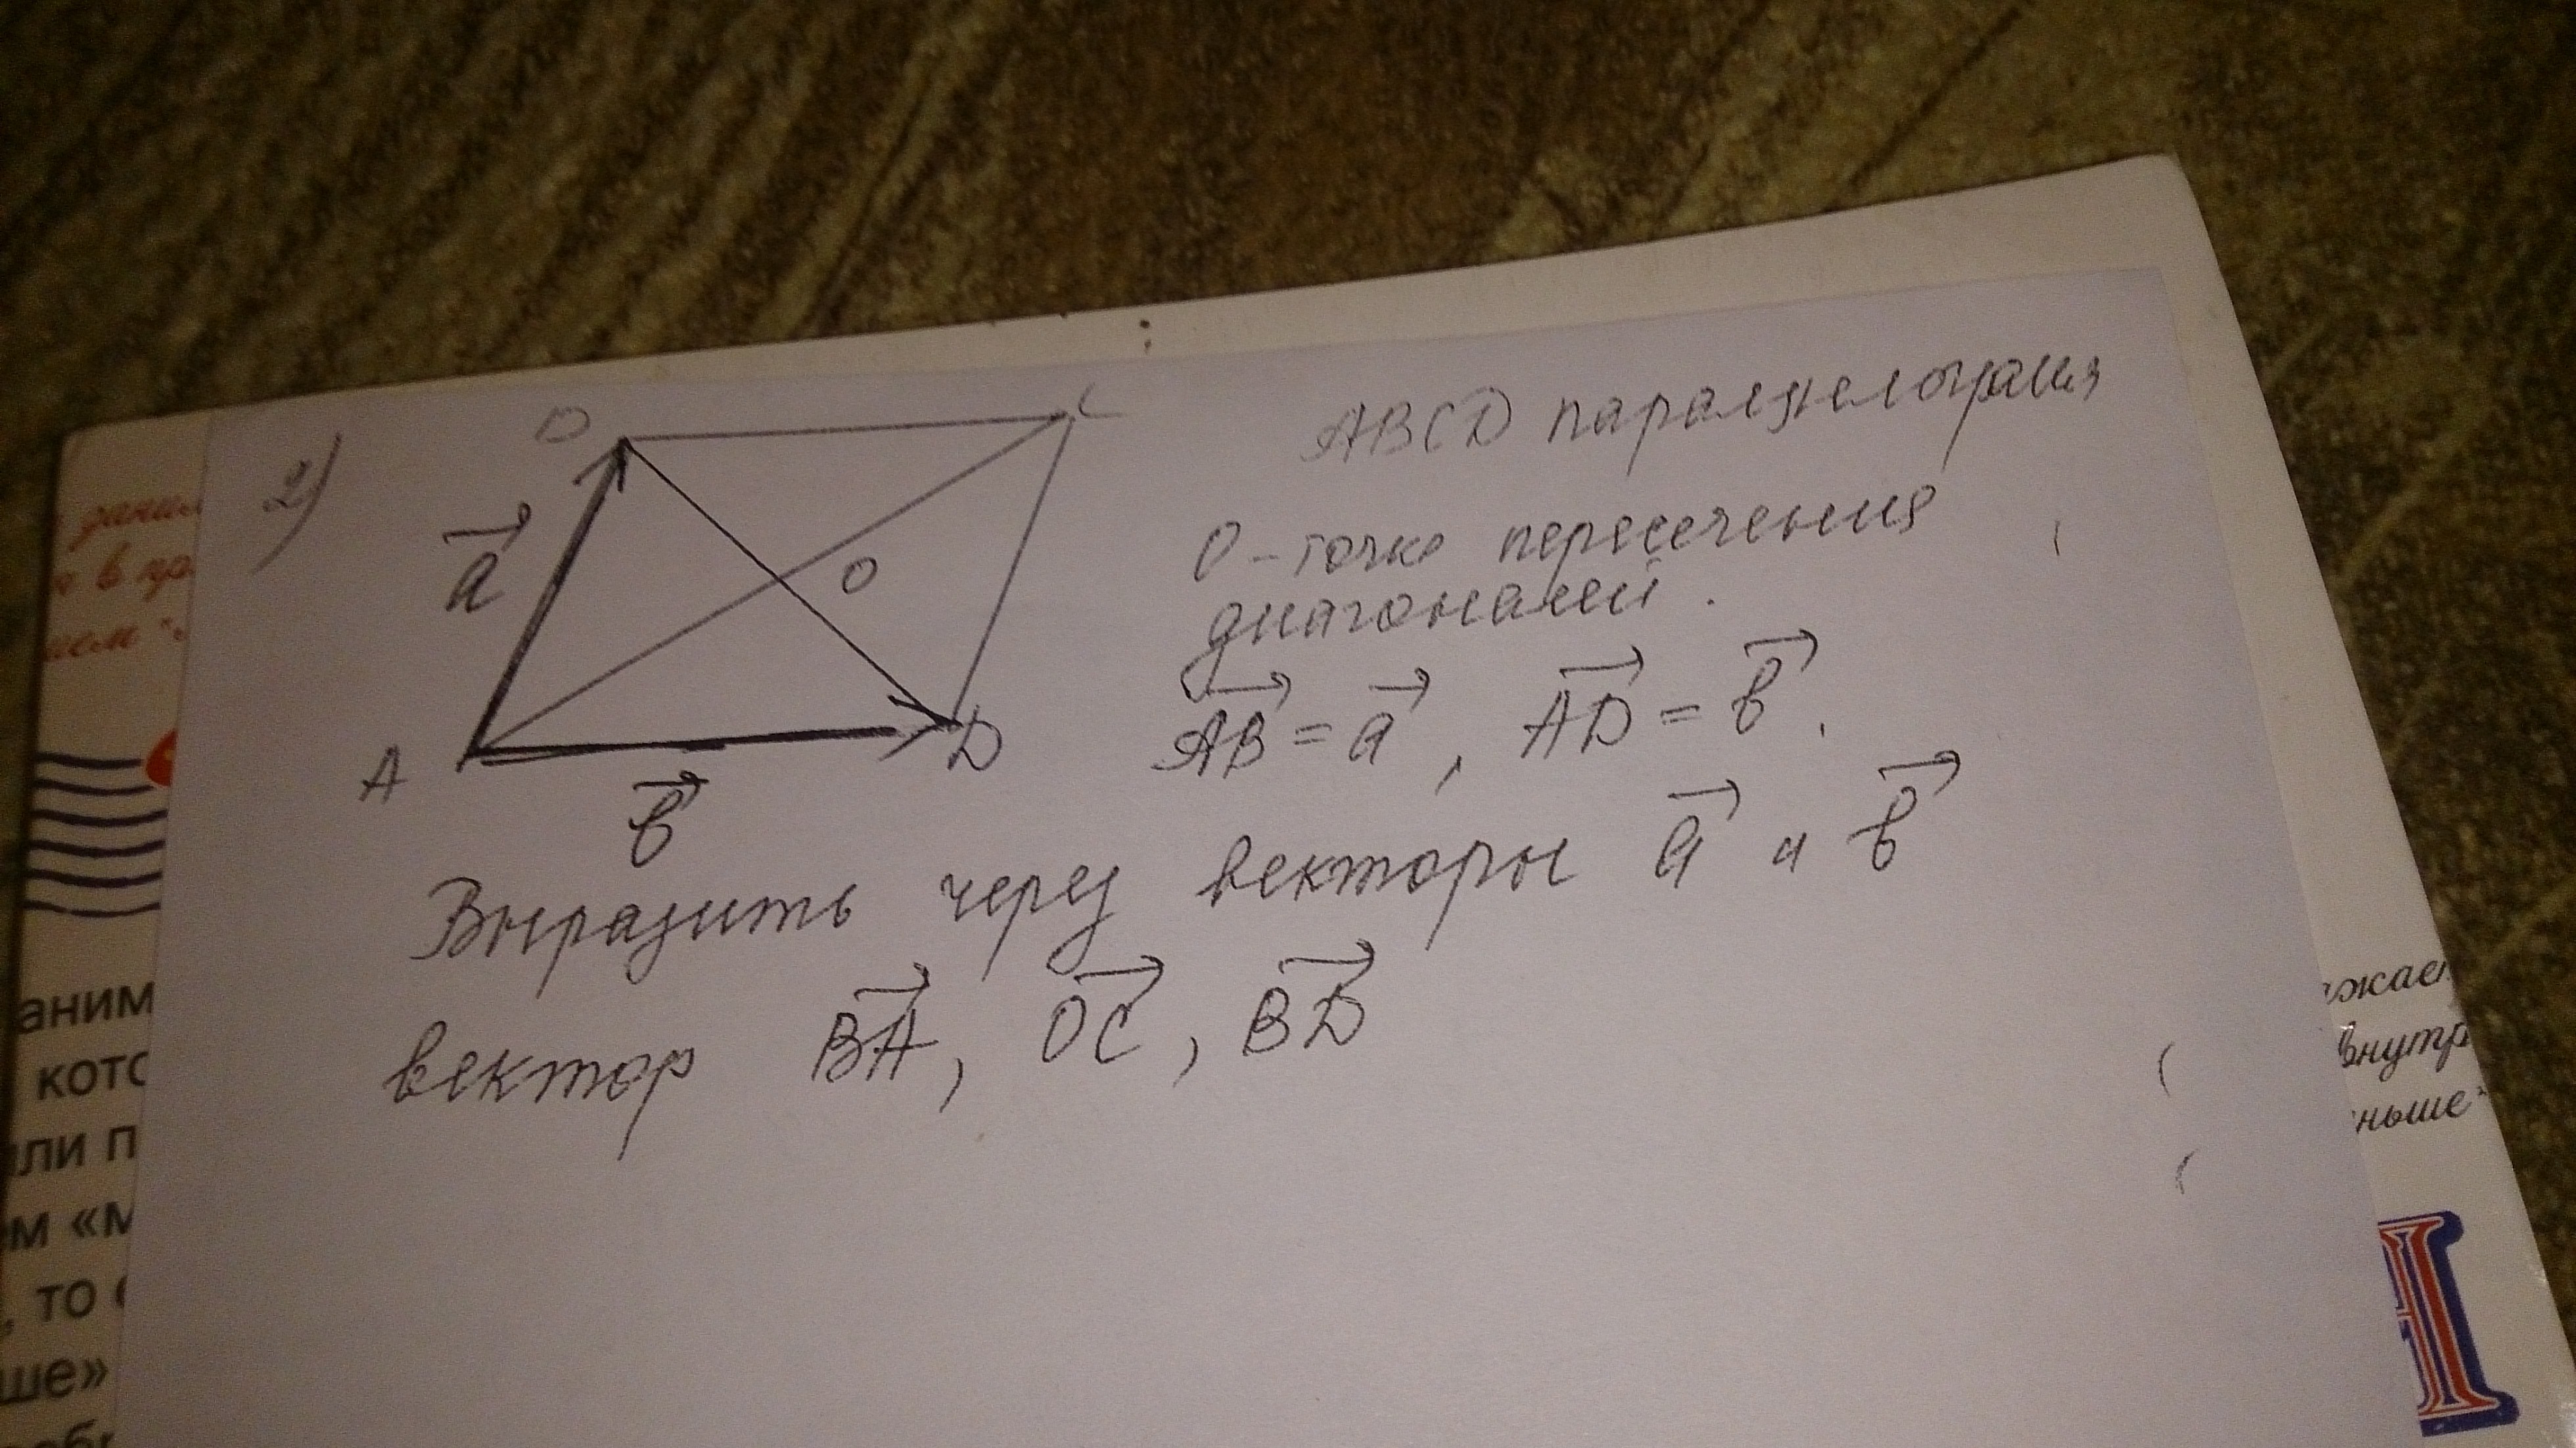 2)
C
a
O
A
D
b
ABCD параллелограмм
O - точка пересечения
диагоналей.
AB = a, AD = b.
Выразить через векторы a и b
вектор BA, OC, BD
аним
кото
или п
ем «м
, то
ше»
ажает
внутр
ньше"
в